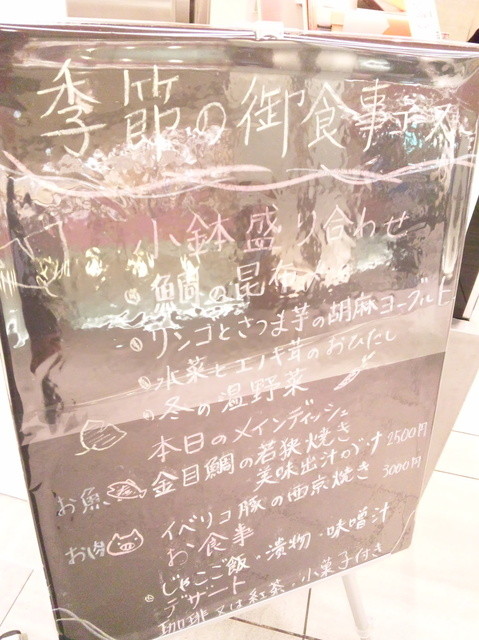 季節の御食事コース
小鉢盛り合わせ
鯛の昆布
リンゴとさつま芋の胡麻ヨーグルト
水菜とエノキ茸のおひたし
冬の温野菜
本日のメインディッシュ
お魚 金目鯛の若狭焼き
美味出汁 2500円
お肉 イベリコ豚の西京焼き 3000円
お食事
じゃこご飯・漬物・味噌汁
デザート
珈琲又は紅茶・小菓子付き